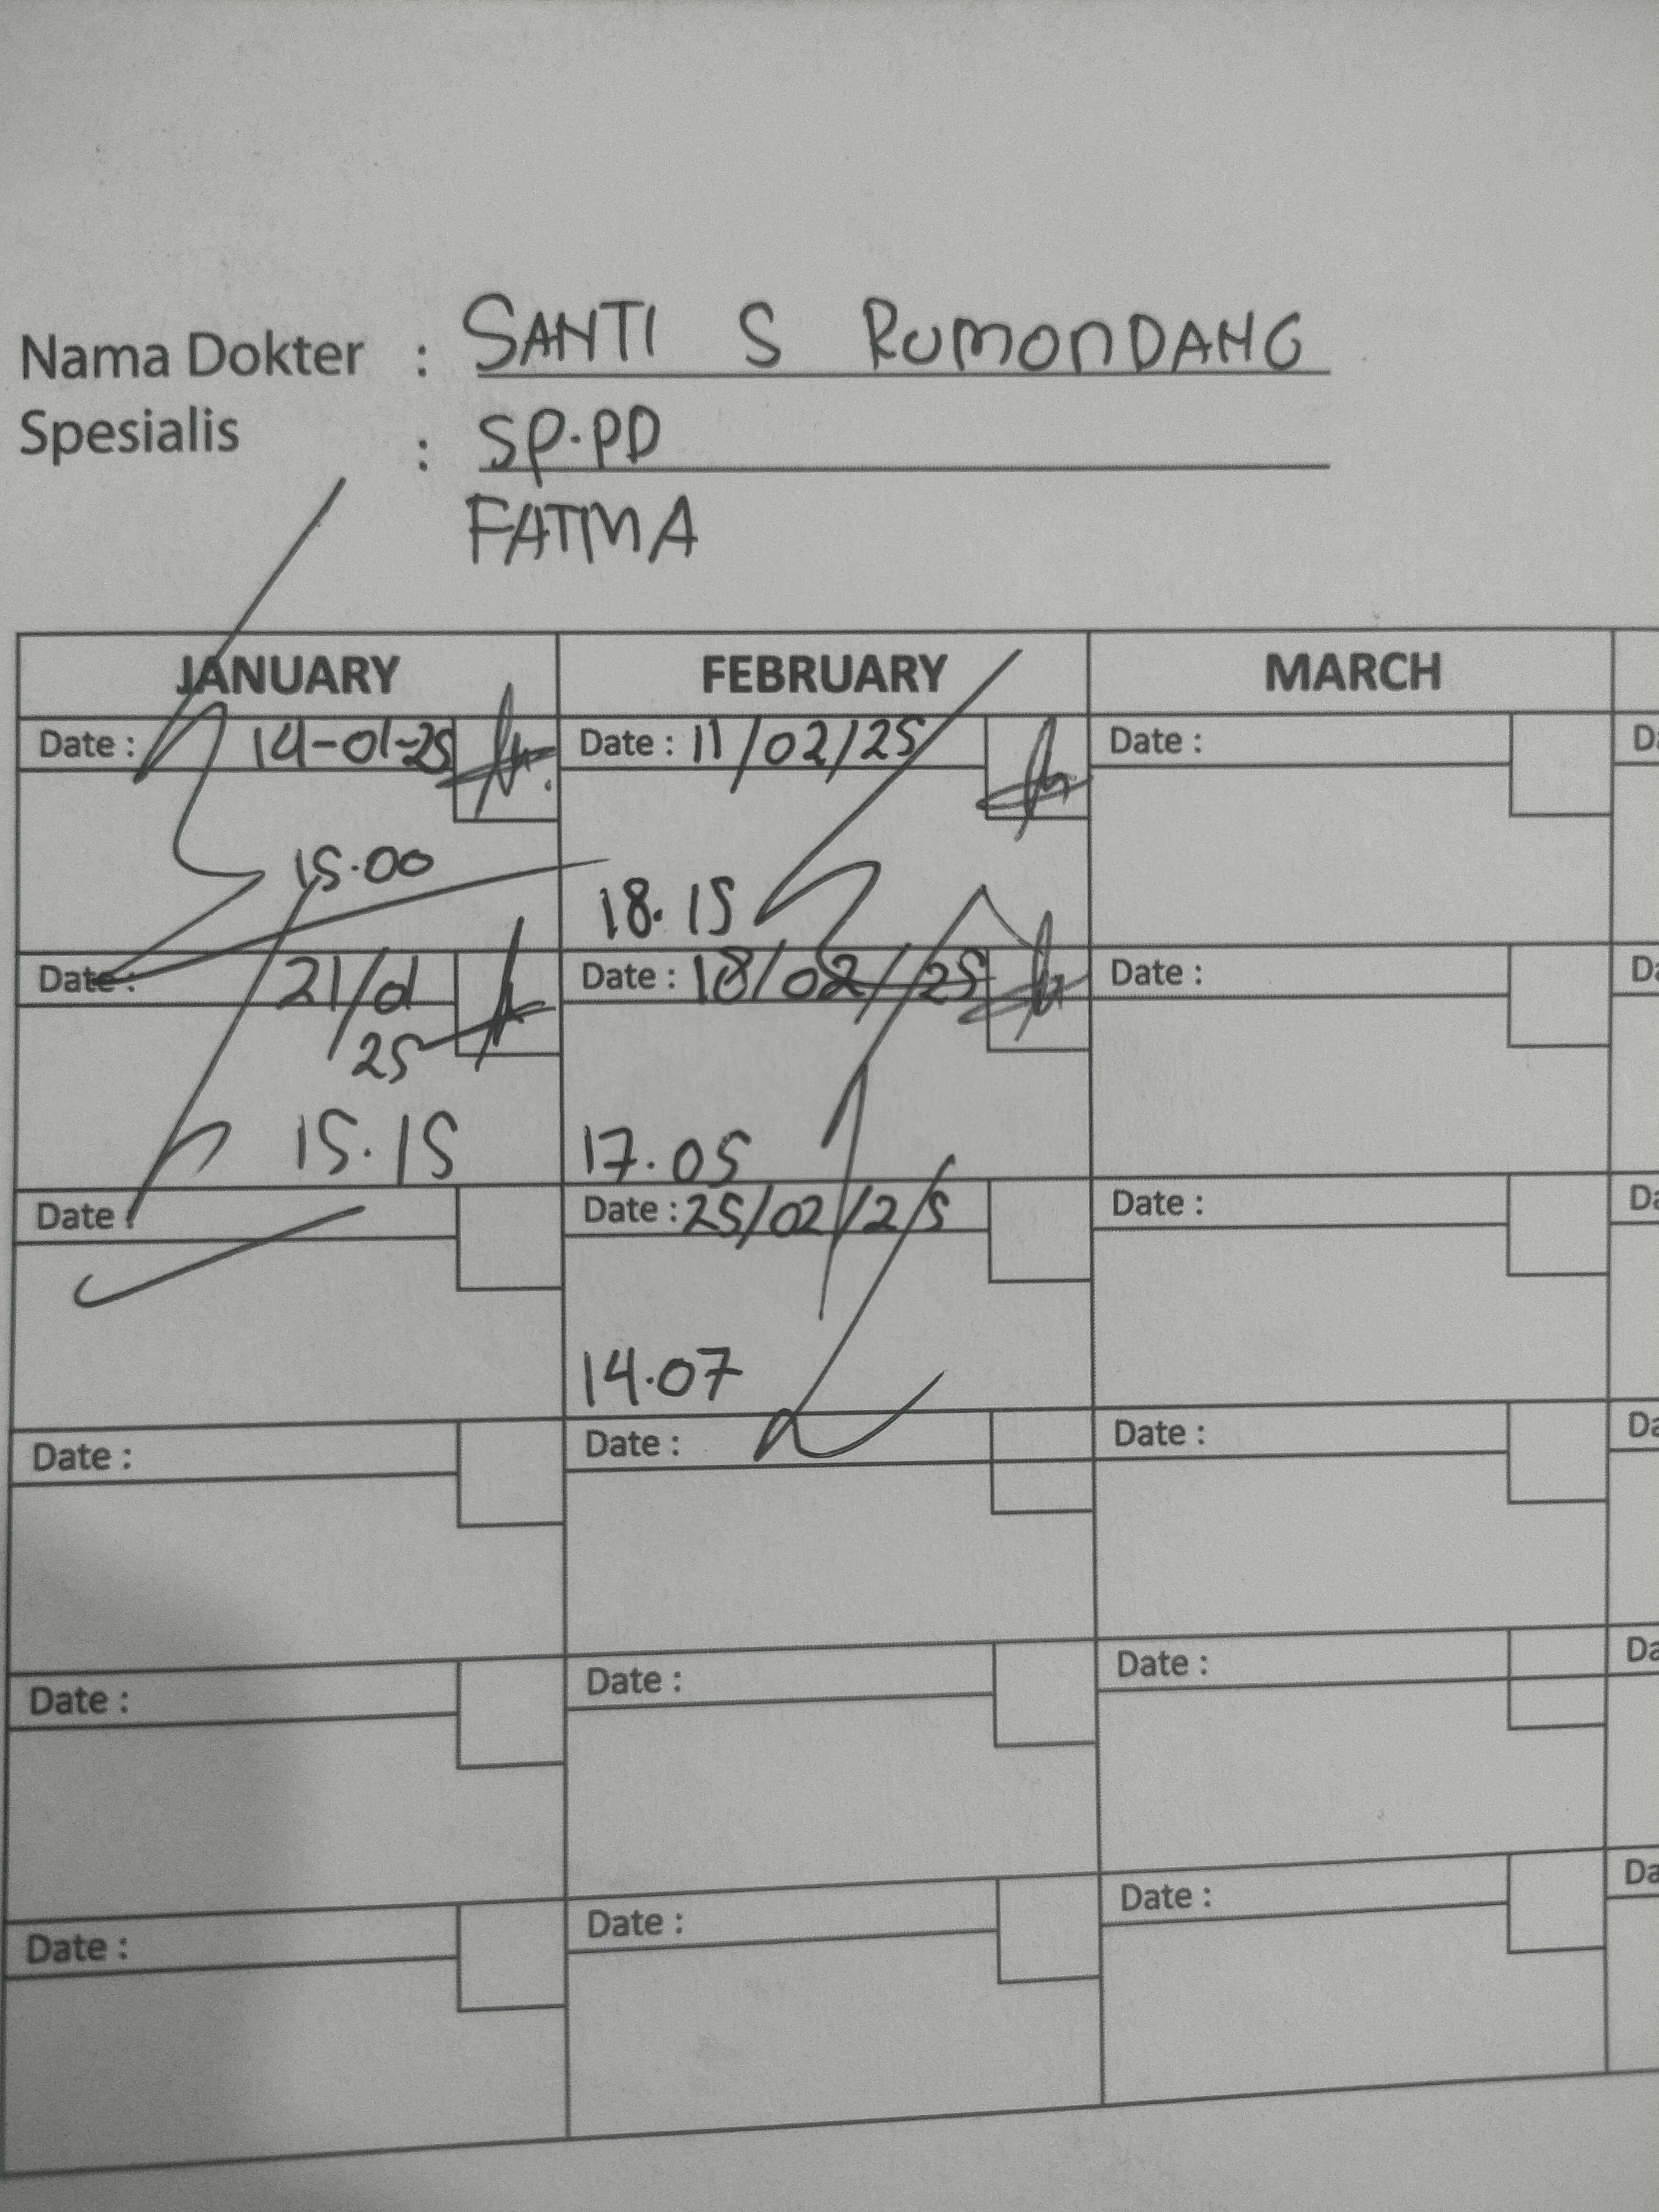 Nama Dokter : SANTI S RUMONDANG
Spesialis : SP.PD
FATMA
JANUARY FEBRUARY MARCH
Date : 14-01-25 Date : 11/02/25 Date : Da
15.00 18.15
Date : 21/01 Date : 18/02/25 Date : Da
25
15.15 17.05
Date : Date : 25/02/25 Date : Da
14.07
Date : Date : Date : Da
Date : Date : Date : Da
Date : Date : Date : Da